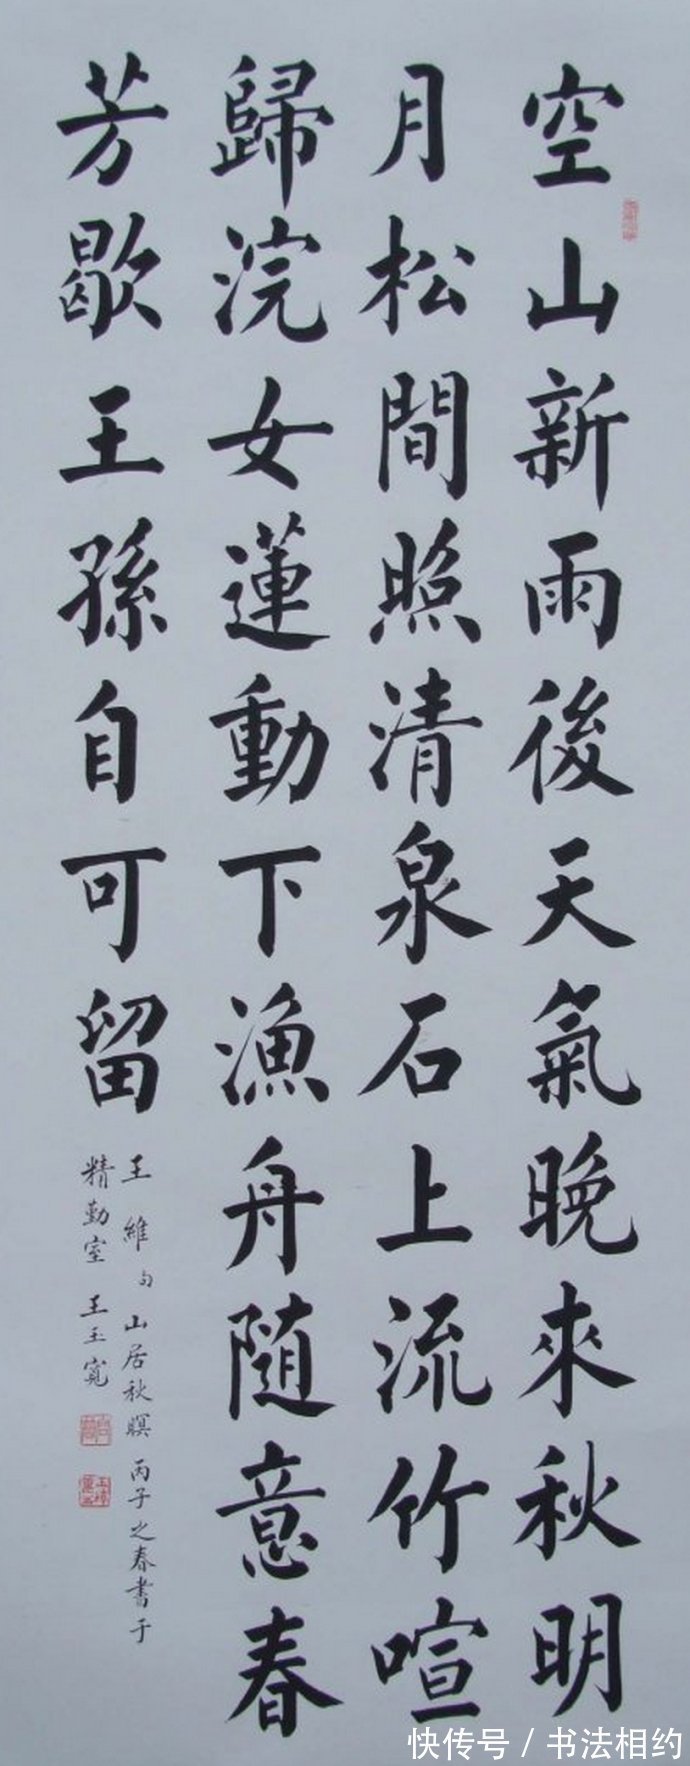 空山新雨後天氣晚來秋明
月松間照清泉石上流竹喧
歸浣女蓮動下漁舟隨意春
芳歇王孫自可留
王維句山居秋暝丙子之春書于
精勤室王玉寬
快传号/书法相约